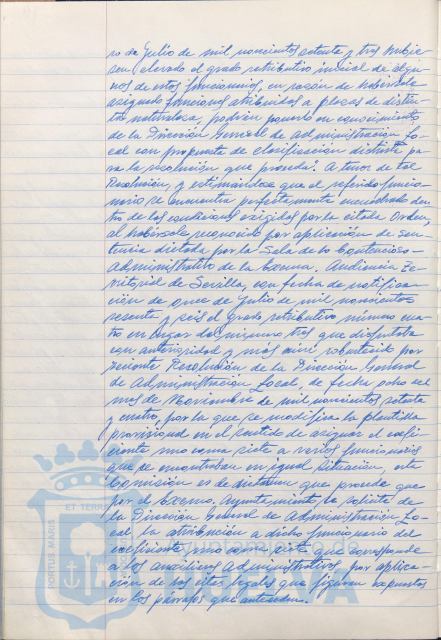 ro de Julio de mil novecientos setenta y tres hubie
sen elevado el grado retributivo inicial de algu
nos de estos funcionarios, en razón de habérsele
asignado funciones atribuidas a plazas de distin
ta naturaleza, podrán ponerlo en conocimiento
de la Dirección General de Administración Lo-
cal con propuesta de clasificación distinta pa
ra la resolución que proceda". A tenor de tal
Resolución, y estimándose que el referido funcio-
nario se encuentra perfectamente encuadrado den
tro de las condiciones exigidas por la citada Orden,
al habérsele reconocido por aplicación de Sen
tencia dictada por la Sala de lo Contencioso-
Administrativo de la Excma. Audiencia Te-
rritorial de Sevilla, con fecha de notifica-
ción de once de Julio de mil novecientos
sesenta y seis el grado retributivo número cua
tro en lugar del número tres que disfrutaba
con anterioridad y más aún robustecido por
reciente Resolución de la Dirección General
de Administración Local, de fecha ocho del
mes de Noviembre de mil novecientos setenta
y cuatro, por la que se modifica la plantilla
provisional en el sentido de asignar el coefi-
ciente uno coma siete a varios funcionarios
que se encontraban en igual situación, esta
Comisión es de dictamen que procede que
por el Excmo. Ayuntamiento, se solicite de
la Dirección General de Administración Lo-
cal la atribución a dicho funcionario del
coeficiente uno coma siete que corresponde
a los auxiliares Administrativos por aplica-
ción de los citados legales que figuran expuestos
en los párrafos que anteceden.
PORTUS MARIS
ET TERR